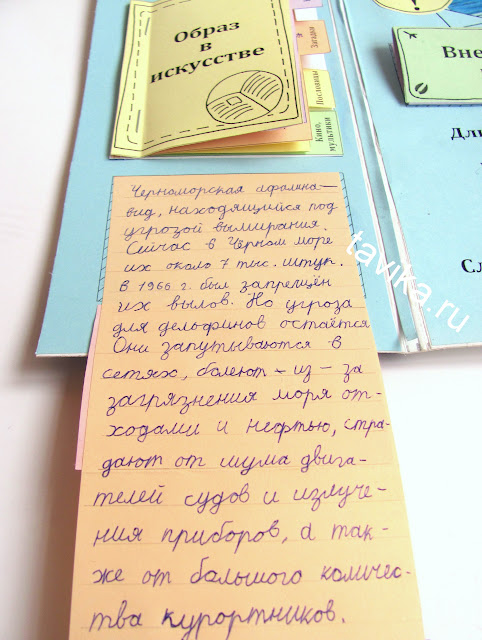 Образ
в
искусстве
Загадки
Пословицы
Кино,
мультики
Вне
Дли
Сл
tavika.ru
Черноморская афалина —
вид, находящийся под
угрозой вымирания.
Сейчас в Чёрном море
их около 7 тыс. штук.
В 1966 г. был запрещён
их вылов. Но угроза
для дельфинов остаётся
Они запутываются в
сетях, болеют - из - за
загрязнения моря от-
ходами и нефтью, стра-
дают от шума двига-
телей судов и излуче-
ния приборов, а так-
же от большого количес-
тва курортников.